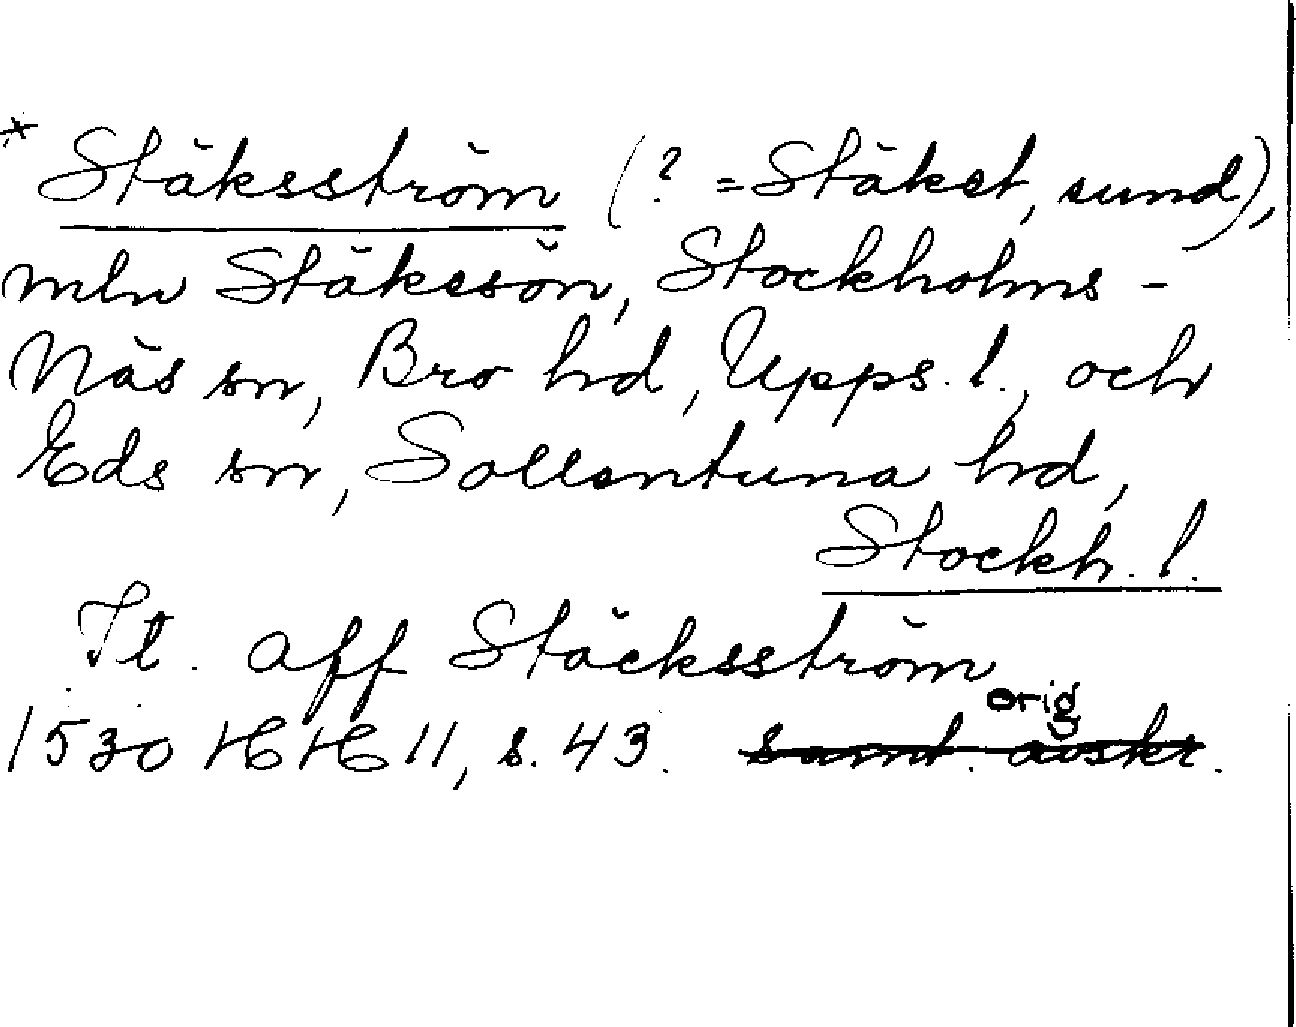 * Stäksström (? = Stäket, sund),
mln Stäksön, Stockholms-
Näs sn, Bro hd, Upps. l., och
Eds sn, Sollentuna hd,
Stockh. l.
It. aff Stäcksström
orig
1530 HH 11, s. 43. samt. avskr.